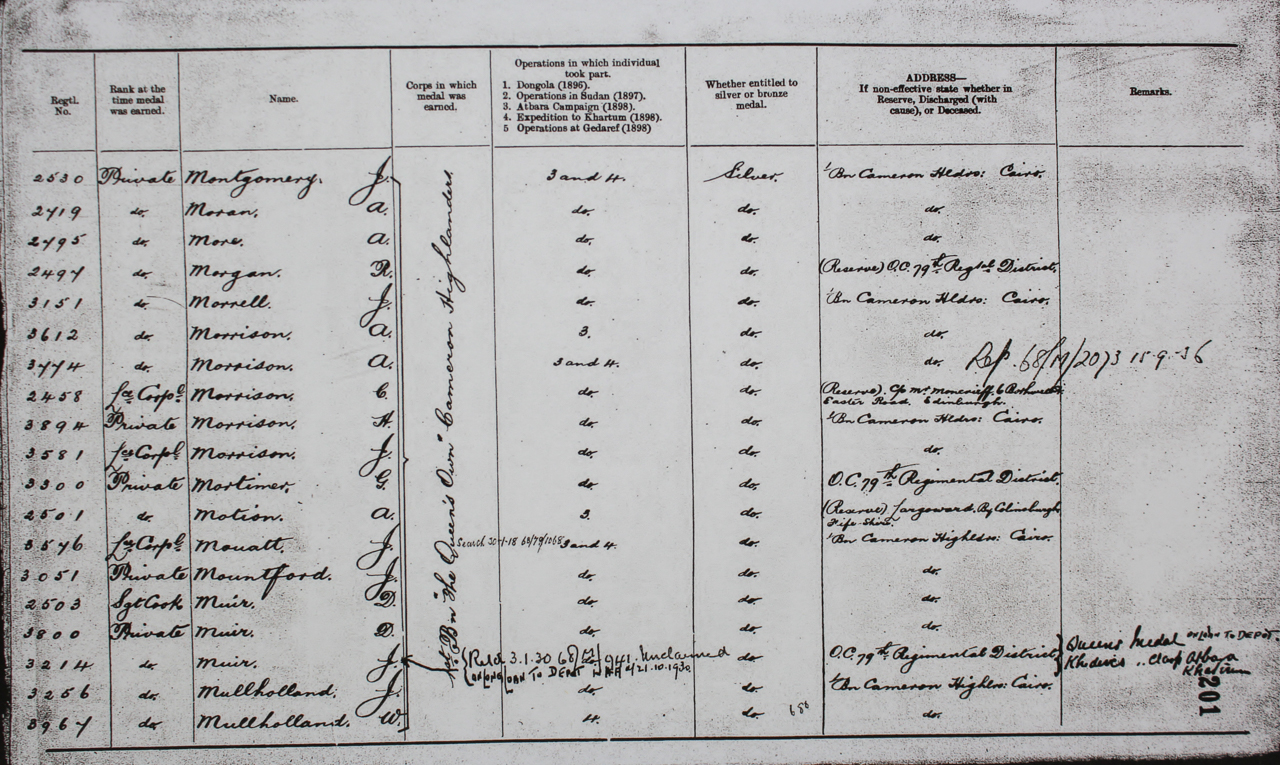 Regtl. No. Rank at the time medal was earned. Name. Corps in which medal was earned. Operations in which individual took part. 1. Dongola (1896). 2. Operations in Sudan (1897). 3. Atbara Campaign (1898). 4. Expedition to Khartum (1898). 5 Operations at Gedaref (1898) Whether entitled to silver or bronze medal. ADDRESS— If non-effective state whether in Reserve, Discharged (with cause), or Deceased. Remarks.
1st Bn "The Queen's Own" Cameron Highlanders
2530 Private Montgomery. J. 3 and 4. Silver. 1/Bn Cameron Hldrs: Cairo.
2719 do. Moran. A. do. do. do.
2795 do. More. A. do. do. do.
2497 do. Morgan. R. do. do. (Reserve) O.C. 79th Regtal District.
3151 do. Morrell. J. do. do. 1/Bn Cameron Hldrs: Cairo.
3612 do. Morrison. A. 3. do. do.
3774 do. Morrison. A. 3 and 4. do. do. 68/M/2073 15-9-36
2458 Lce Corpl Morrison. C. do. do. (Reserve). C/o Mr Moncrieff, 6
Easter Road, Edinburgh.
3894 Private Morrison. H. do. do. 1/Bn Cameron Hldrs: Cairo.
3581 Lce Corpl Morrison. J. do. do. do.
3300 Private Mortimer. G. do. do. O.C. 79th Regimental District.
2501 do. Motion. A. 3. do. (Reserve) Largoward, By Colinsburgh,
Fife-Shire.
3576 Lce Corpl Mouatt. J. Search 30-1-18 68/79/1068 3 and 4. do. 1/Bn Cameron Highldrs: Cairo.
3051 Private Mountford. J. do. do. do.
2503 Sgt Cook Muir. D. do. do. do.
3800 Private Muir. D. do. do. do.
3214 do. Muir. J. Retd 3.1.30 941. Unclaimed do. O.C. 79th Regimental District Queens Medal ON LOAN TO DEPOT
ON LONG LOAN TO DEPT 21.10.1930 Khedives .. Clasp Atbara
Khartum
3256 do. Mullholland. J. do. do. 1/Bn Cameron Highlrs: Cairo.
3967 do. Mullholland. W. 4. do. 686 do.
201